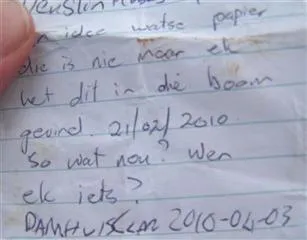 idee watse papier
die is nie maar ek
het dit in die boom
gevind. 21/02/2010
So wat nou? Wen
ek iets?
2010-04-03